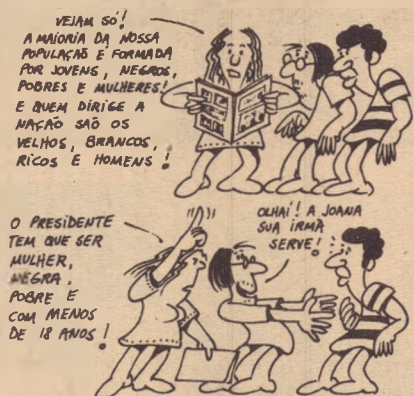 VEJAM SÓ!
A MAIORIA DA NOSSA
POPULAÇÃO É FORMADA
POR JOVENS, NEGROS,
POBRES E MULHERES!
E QUEM DIRIGE A
NAÇÃO SÃO OS
VELHOS, BRANCOS,
RICOS E HOMENS!
O PRESIDENTE
TEM QUE SER
MULHER,
NEGRA,
POBRE E
COM MENOS
DE 18 ANOS!
OLHAÍ! A JOANA
SUA IRMÃ
SERVE!